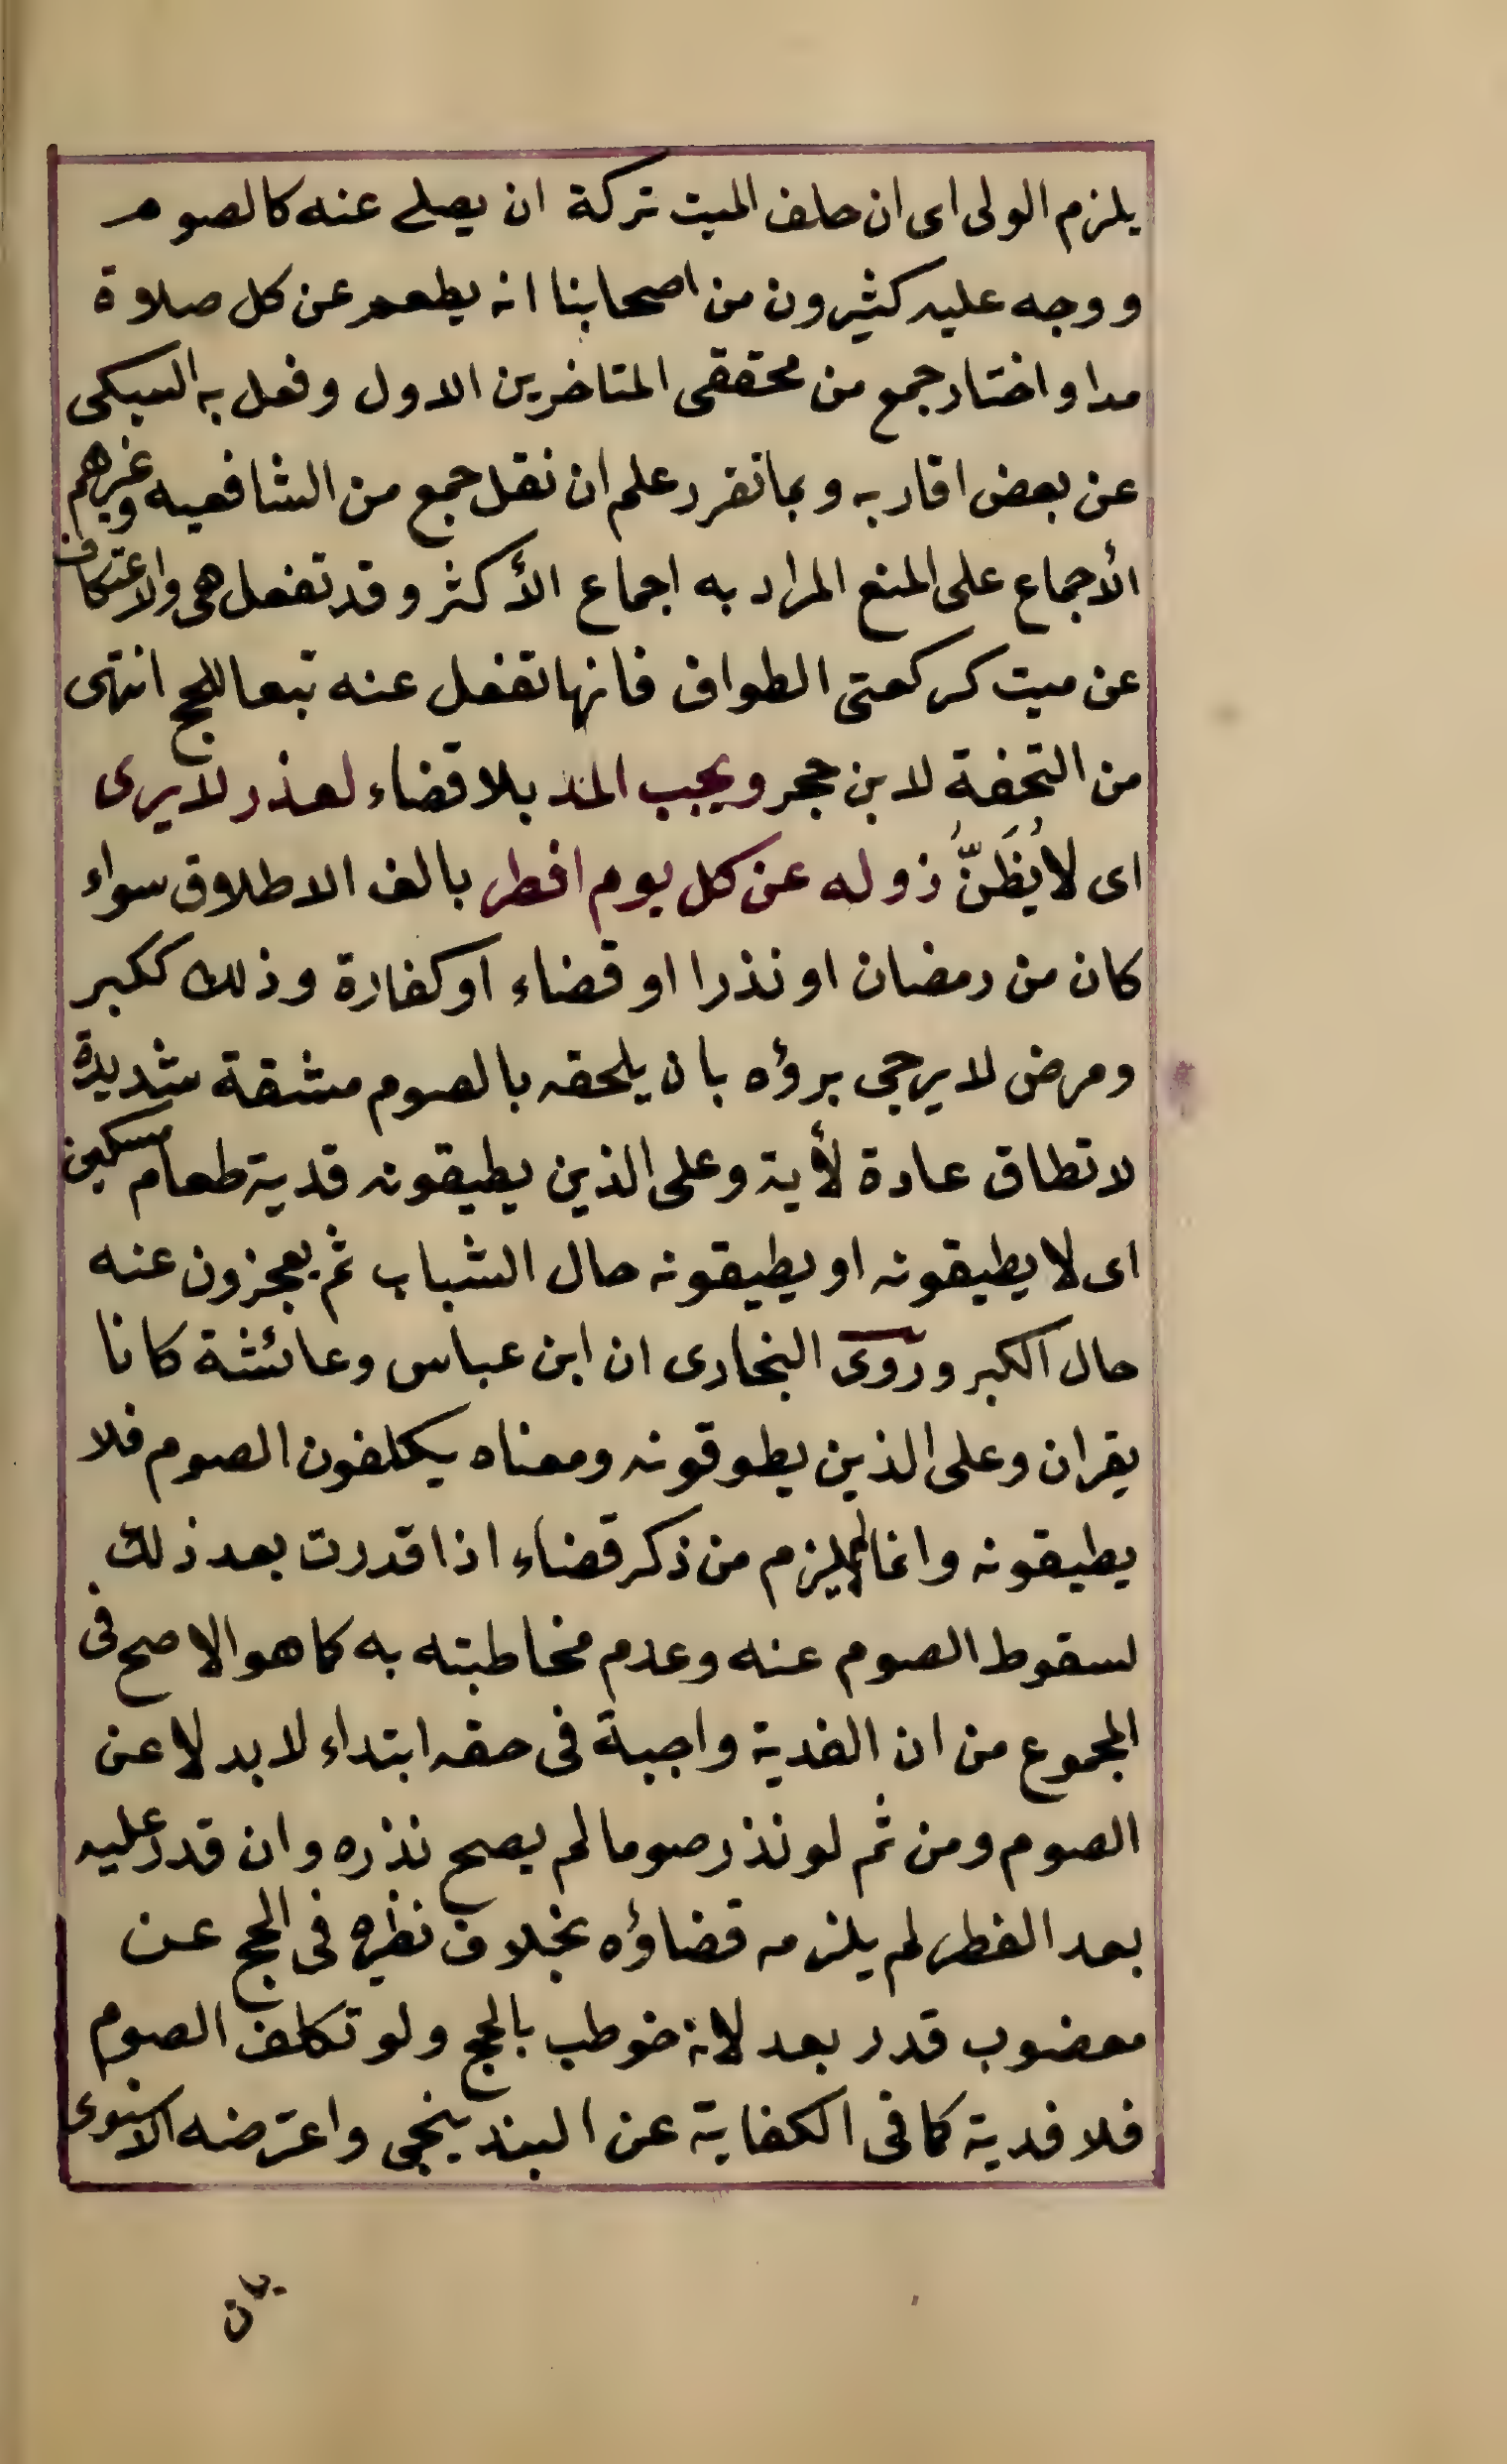 يلزم الولى اى ان حلف الميت تركة ان يصلے عنه كالصوم
ووجه عليه كثيرون من اصحابنا انه يطعم عن كل صلاة
مدا واختار جمع من محققى المتاخرين الاول وفعل به السبكى
عن بعض اقاربه وبما تقرر علم ان نقل جمع من الشافعيه وغيرهم
الأجماع على المنع المراد به اجماع الأكثر وقد تفعل هى والاعتكاف
عن ميت كركعتى الطواف فانها تفعل عنه تبعا للحج انتهى
من التحفة لابن حجر ويجب المد بلا قضاء لعذر لا يرى
اى لا يُظَنُّ زوله عن كل يوم افطر بالف الاطلاق سواء
كان من رمضان او نذرا او قضاء او كفارة وذلك ككبر
ومرض لا يرجى برؤه بان يلحقه بالصوم مشقة شديدة
لا تطاق عادة لأية وعلى الذين يطيقونه فدية طعام مسكين
اى لا يطيقونه او يطيقونه حال الشباب ثم يعجزون عنه
حال الكبر وروى البخارى ان ابن عباس وعائشة كانا
يقران وعلى الذين يطوقونه ومعناه يكلفون الصوم فلا
يطيقونه وانما لم يلزم من ذكر قضاء اذا قدرت بعد ذلك
لسقوط الصوم عنه وعدم مخاطبته به كما هو الاصح فى
المجموع من ان الفدية واجبة فى حقه ابتداء لا بدلا عن
الصوم ومن ثم لو نذر صوما لم يصح نذره وان قدر عليه
بعد الفطر لم يلزمه قضاؤه بخلاف نظيره فى الحج عن
معضوب قدر بعد لانه خوطب بالحج ولو تكلف الصوم
فلا فدية كما فى الكفاية عن البندينجى واعترضه الاسنوى
بان